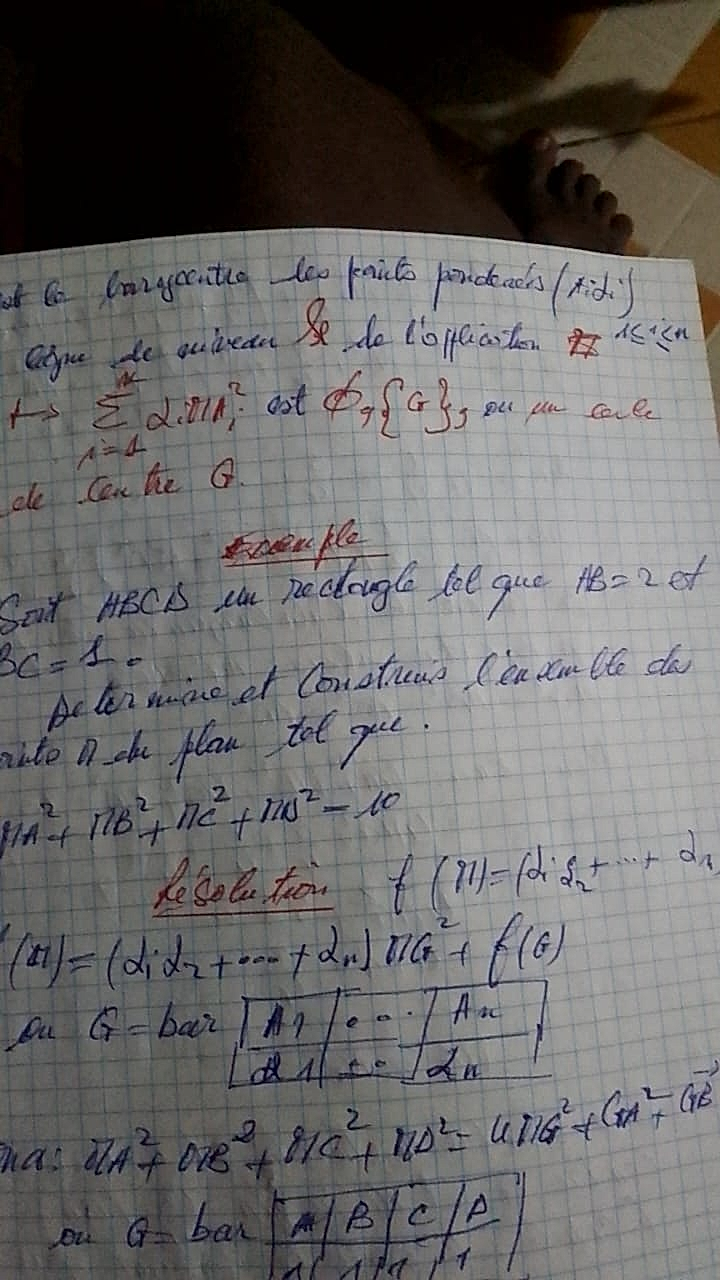 est le barycentre des points pondérés (Ai αi)
ligne de niveau de l'application 1≤i≤n
↦ Σ αi MAi² est ∅, {G}, ou un cercle
n
i=1
de centre G.
Exemple
Soit ABCD un rectangle tel que AB=2 et
BC=1.
Determine et Construis l'ensemble des
points M du plan tel que.
MA²+MB²+MC²+MD²=10
Résolution f(M)=(α1 α2+...+αn
f(M)=(α1 α2+...+αn)MG²+f(G)
ou G=bar A1 ... An
α1 ... αn
ona: MA²+MB²+MC²+MD²=4MG²+GA²+GB
où G=bar A B C D
1 1 1 1